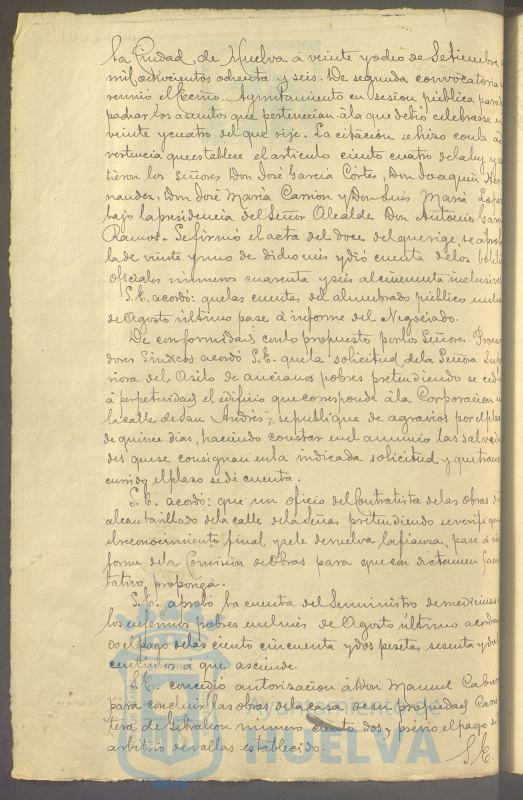 la Ciudad de Huelva á veinte y ocho de Setiembre
mil ochocientos ochenta y seis. De segunda convocatoria
reunió el Excmo. Ayuntamiento en sesion pública para
pachar los asuntos que pertenecian á la que debió celebrarse
veinte y cuatro del que rije. La citacion se hizo con la ad
vertencia que establece el artículo ciento cuatro de la ley y
tieron los Señores Don José García Cortés, Don Joaquin Her
nandez, Don José María Carrion y Don Luis María Lopez
bajo la presidencia del Señor Alcalde Don Antonio Garcia
Ramos. Se firmó el acta del doce del que rige, se
la de veinte y uno de dicho mes y dió cuenta de los
oficiales números cuarenta y seis al cincuenta inclusive
S.E. acordó: que las cuentas del alumbrado público
de Agosto último pase á informe del Negociado.
De conformidad con lo propuesto por los Señores Procu
dores Síndicos acordó S.E. que la solicitud de la Señora Supe
riora del Asilo de ancianos pobres pretendiendo se ceda
á perpetuidad el edificio que corresponde á la Corporacion
la calle de San Andrés, se publique de agravios por el plazo
de quince dias, haciendo constar en el anuncio las
des que se consignan en la indicada solicitud, y que trans
currido el plazo se dé cuenta.
S.E. acordó: que un oficio del Contratista de las obras de
alcantarillado de la calle de la Señas pretendiendo se verifique
el reconocimiento final y se le devuelva la fianza, pase á in
forme de la Comision de Obras para que con dictamen facul
tativo, proponga.
S.E. aprobó la cuenta del Suministro de medicinas
los enfermos pobres en el mes de Agosto último acordan
do el pago de las ciento cincuenta y dos pesetas sesenta y dos
centimos á que asciende.
S.E. concedió autorizacion á Don Manuel
para concluir las obras de la casa de su propiedad Carre
tera de Gibraleon número ciento dos, prévio el pago del
arbitrio de vallas establecido.
S.E.
Ayuntamiento de
HUELVA